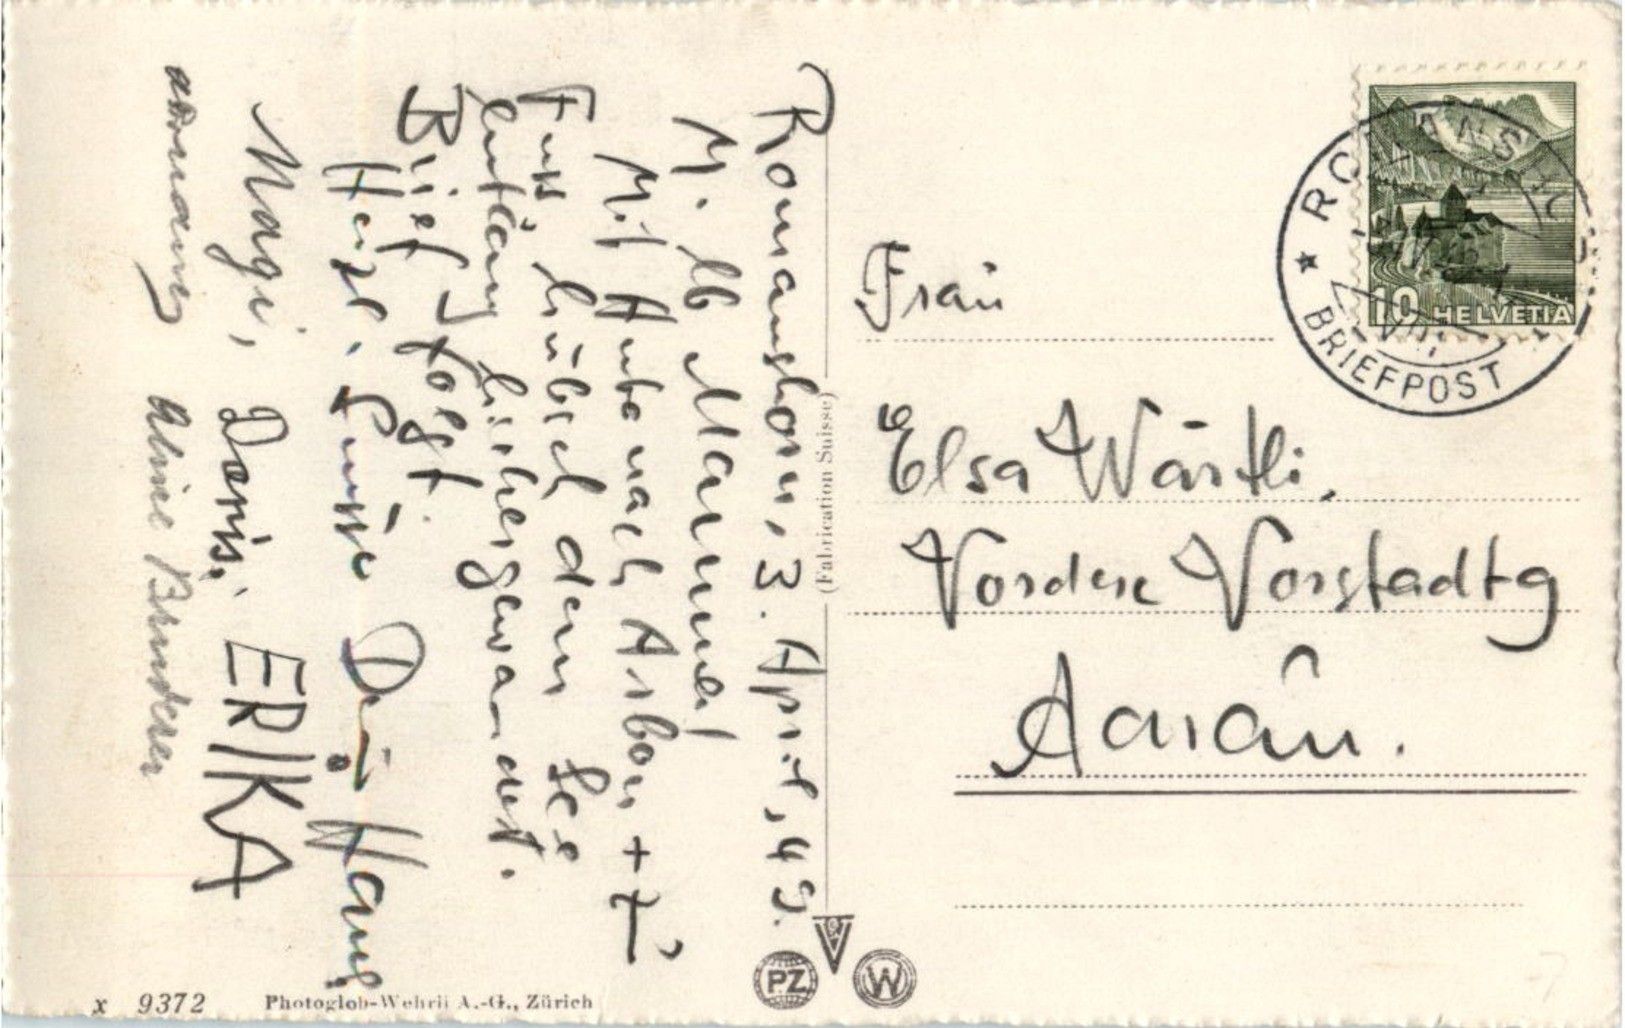 Romanshorn, 3. April, 49.
M. lb Mammel
Mit Auto nach Arbon + z'
Fuss hübsch dem See
entlang hierhergewandert.
Brief folgt.
Herzl. Grüsse Dein Hans
Magi, Doris, ERIKA
Aline Bruderer
(Fabrication Suisse)
Frau
Elsa Wärtli,
Vordere Vorstadtg
Aarau.
10 HELVETIA
BRIEFPOST
PZ
W
x 9372 Photoglob-Wehrli A.-G., Zürich